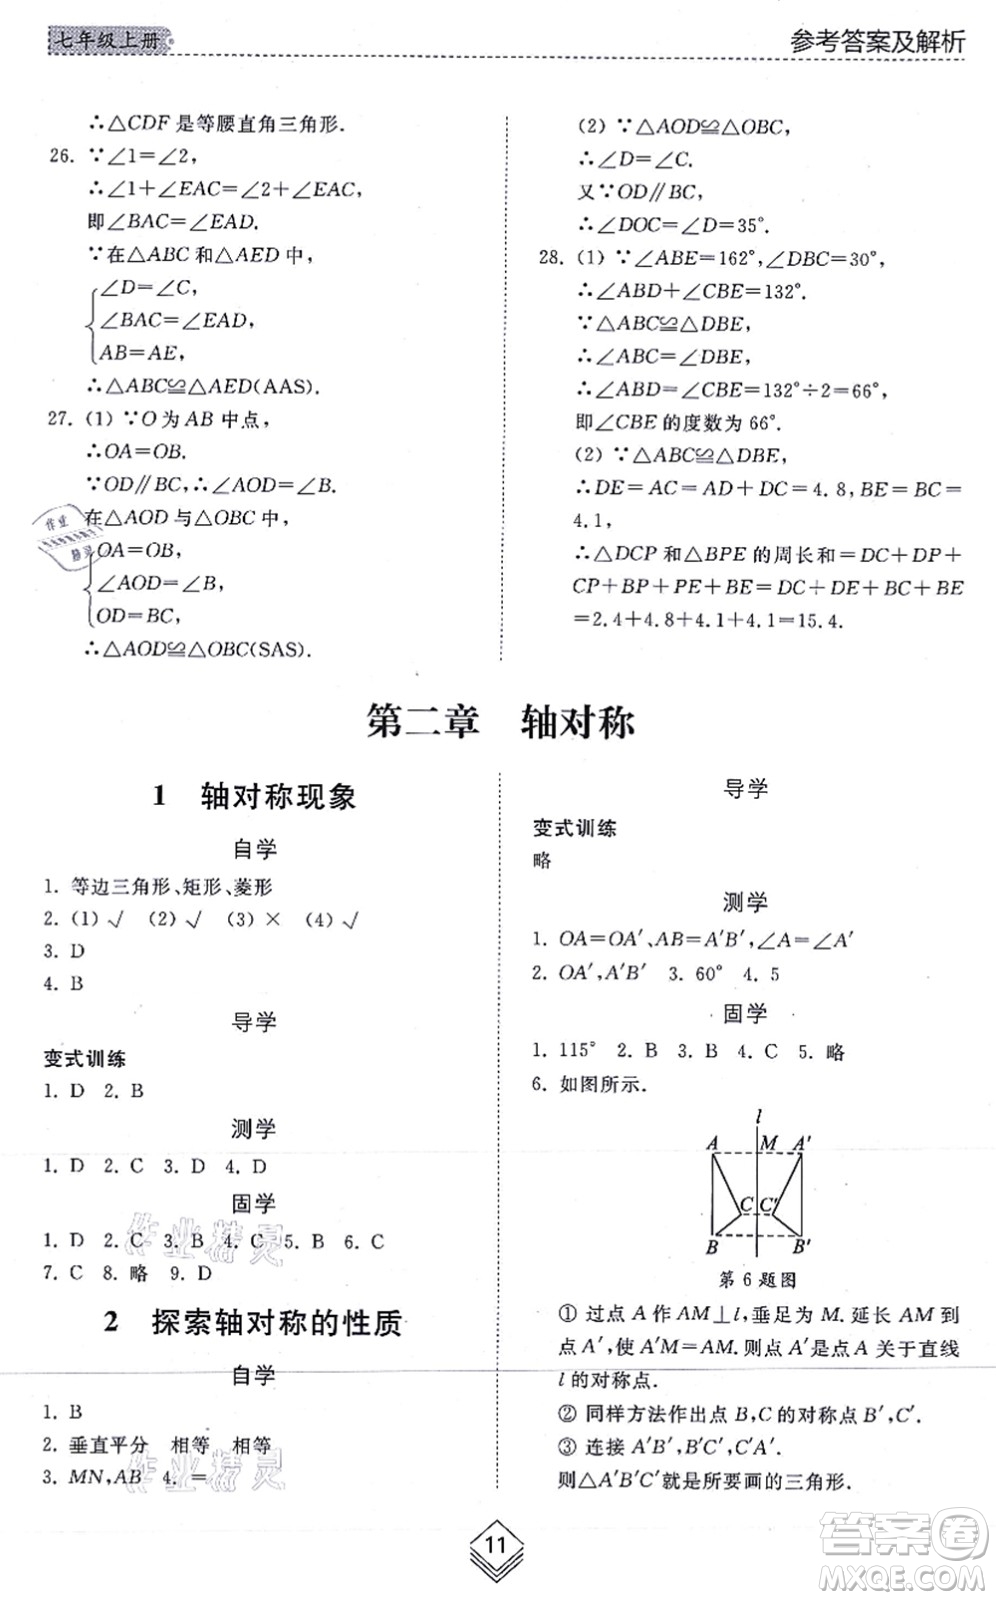 七年级上册
参考答案及解析
∴△CDF是等腰直角三角形.
26. ∵∠1=∠2,
∴∠1+∠EAC=∠2+∠EAC,
即∠BAC=∠EAD.
∵在△ABC和△AED中,
∠D=∠C,
∠BAC=∠EAD,
AB=AE,
∴△ABC≌△AED(AAS).
27. (1) ∵O为AB中点,
∴OA=OB.
∵OD∥BC,∴∠AOD=∠B.
在△AOD与△OBC中,
OA=OB,
∠AOD=∠B,
OD=BC,
∴△AOD≌△OBC(SAS).
(2) ∵△AOD≌△OBC,
∴∠D=∠C.
又∵OD∥BC,
∴∠DOC=∠D=35°.
28. (1) ∵∠ABE=162°,∠DBC=30°,
∴∠ABD+∠CBE=132°.
∵△ABC≌△DBE,
∴∠ABC=∠DBE,
∴∠ABD=∠CBE=132°÷2=66°,
即∠CBE的度数为66°.
(2) ∵△ABC≌△DBE,
∴DE=AC=AD+DC=4.8,BE=BC=
4.1,
∴△DCP和△BPE的周长和=DC+DP+
CP+BP+PE+BE=DC+DE+BC+BE
=2.4+4.8+4.1+4.1=15.4.
第二章 轴对称
1 轴对称现象
自学
1. 等边三角形、矩形、菱形
2. (1)√ (2)√ (3)× (4)√
3. D
4. B
导学
变式训练
1. D 2. B
测学
1. D 2. C 3. D 4. D
固学
1. D 2. C 3. B 4. C 5. B 6. C
7. C 8. 略 9. D
2 探索轴对称的性质
自学
1. B
2. 垂直平分 相等 相等
3. MN,AB 4. =
导学
变式训练
略
测学
1. OA=OA′、AB=A′B′,∠A=∠A′
2. OA′,A′B′ 3. 60° 4. 5
固学
1. 115° 2. B 3. B 4. C 5. 略
6. 如图所示.
l
A M A′
C C′
B B′
第6题图
① 过点A作AM⊥l,垂足为M.延长AM到
点A′,使A′M=AM.则点A′是点A关于直线
l的对称点.
② 同样方法作出点B,C的对称点B′,C′.
③ 连接A′B′,B′C′,C′A′.
则△A′B′C′就是所要画的三角形.
11
作业精灵
作业精灵
答案卷
MXQE.COM